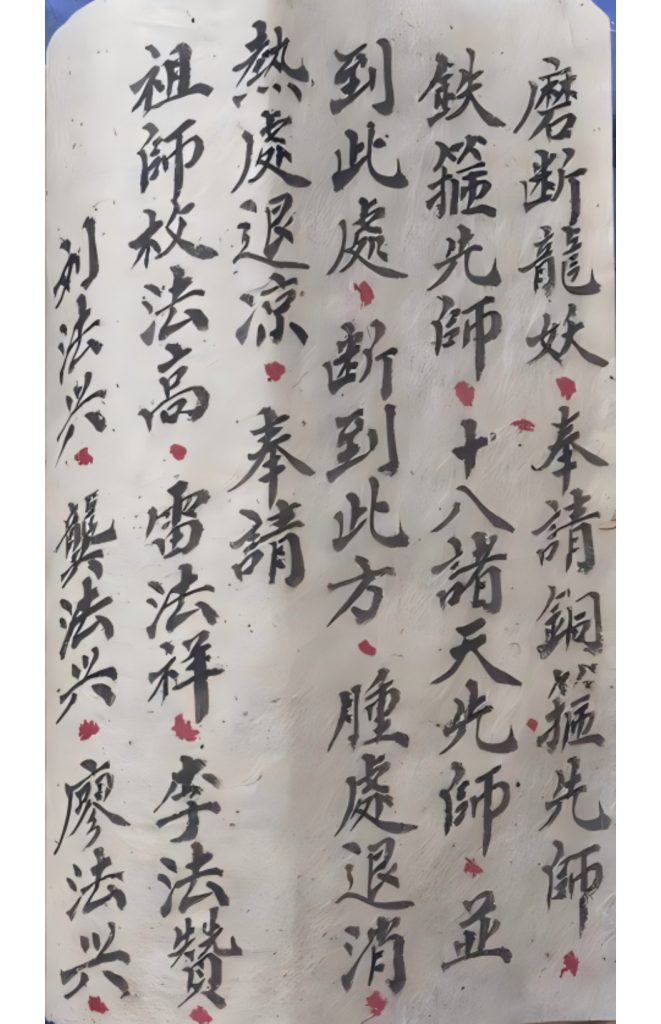 磨断龍妖 奉請銅箍先師
鉄箍先師 十八諸天先師 並
到此處 断到此方 腫處退消
熱處退凉 奉請
祖師枚法高 雷法祥 李法贊
刘法兴 龔法兴 廖法兴